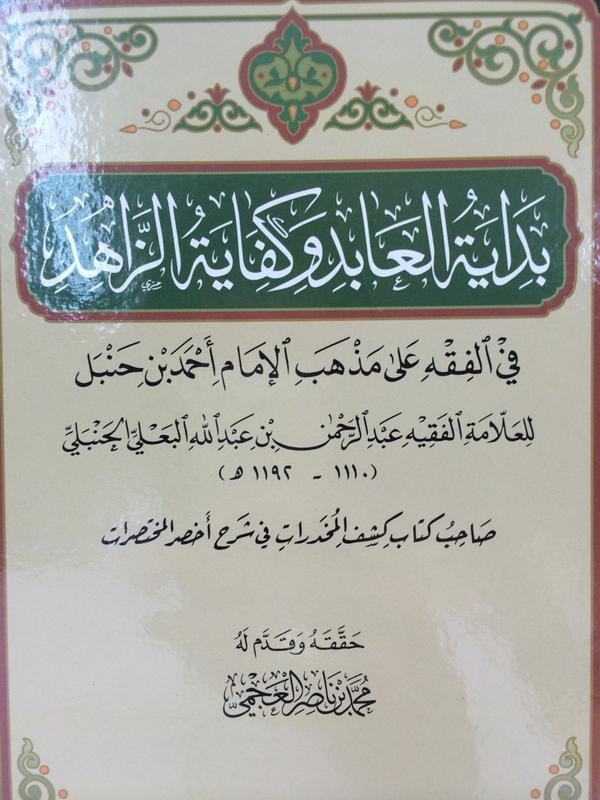 بَدَايَةُ العَابِدِ وَكِفَايَةُ الزَّاهِدِ
فِي الفِقْهِ عَلَى مَذْهَبِ الإِمَامِ أَحْمَدَ بْنِ حَنْبَل
لِلعَلّامَةِ الفَقِيهِ عَبْدِ الرَّحْمٰنِ بْنِ عَبْدِ اللهِ البَعْلِيِّ الحَنْبَلِيِّ
(١١١٠ - ١١٩٢ هـ)
صَاحِبُ كِتَابِ كَشْفِ المُخَدَّرَاتِ فِي شَرْحِ أَخْصَرِ المُخْتَصَرَاتِ
حَقَّقَهُ وَقَدَّمَ لَهُ
مُحَمَّد بْن نَاصِر العَجْمِيّ